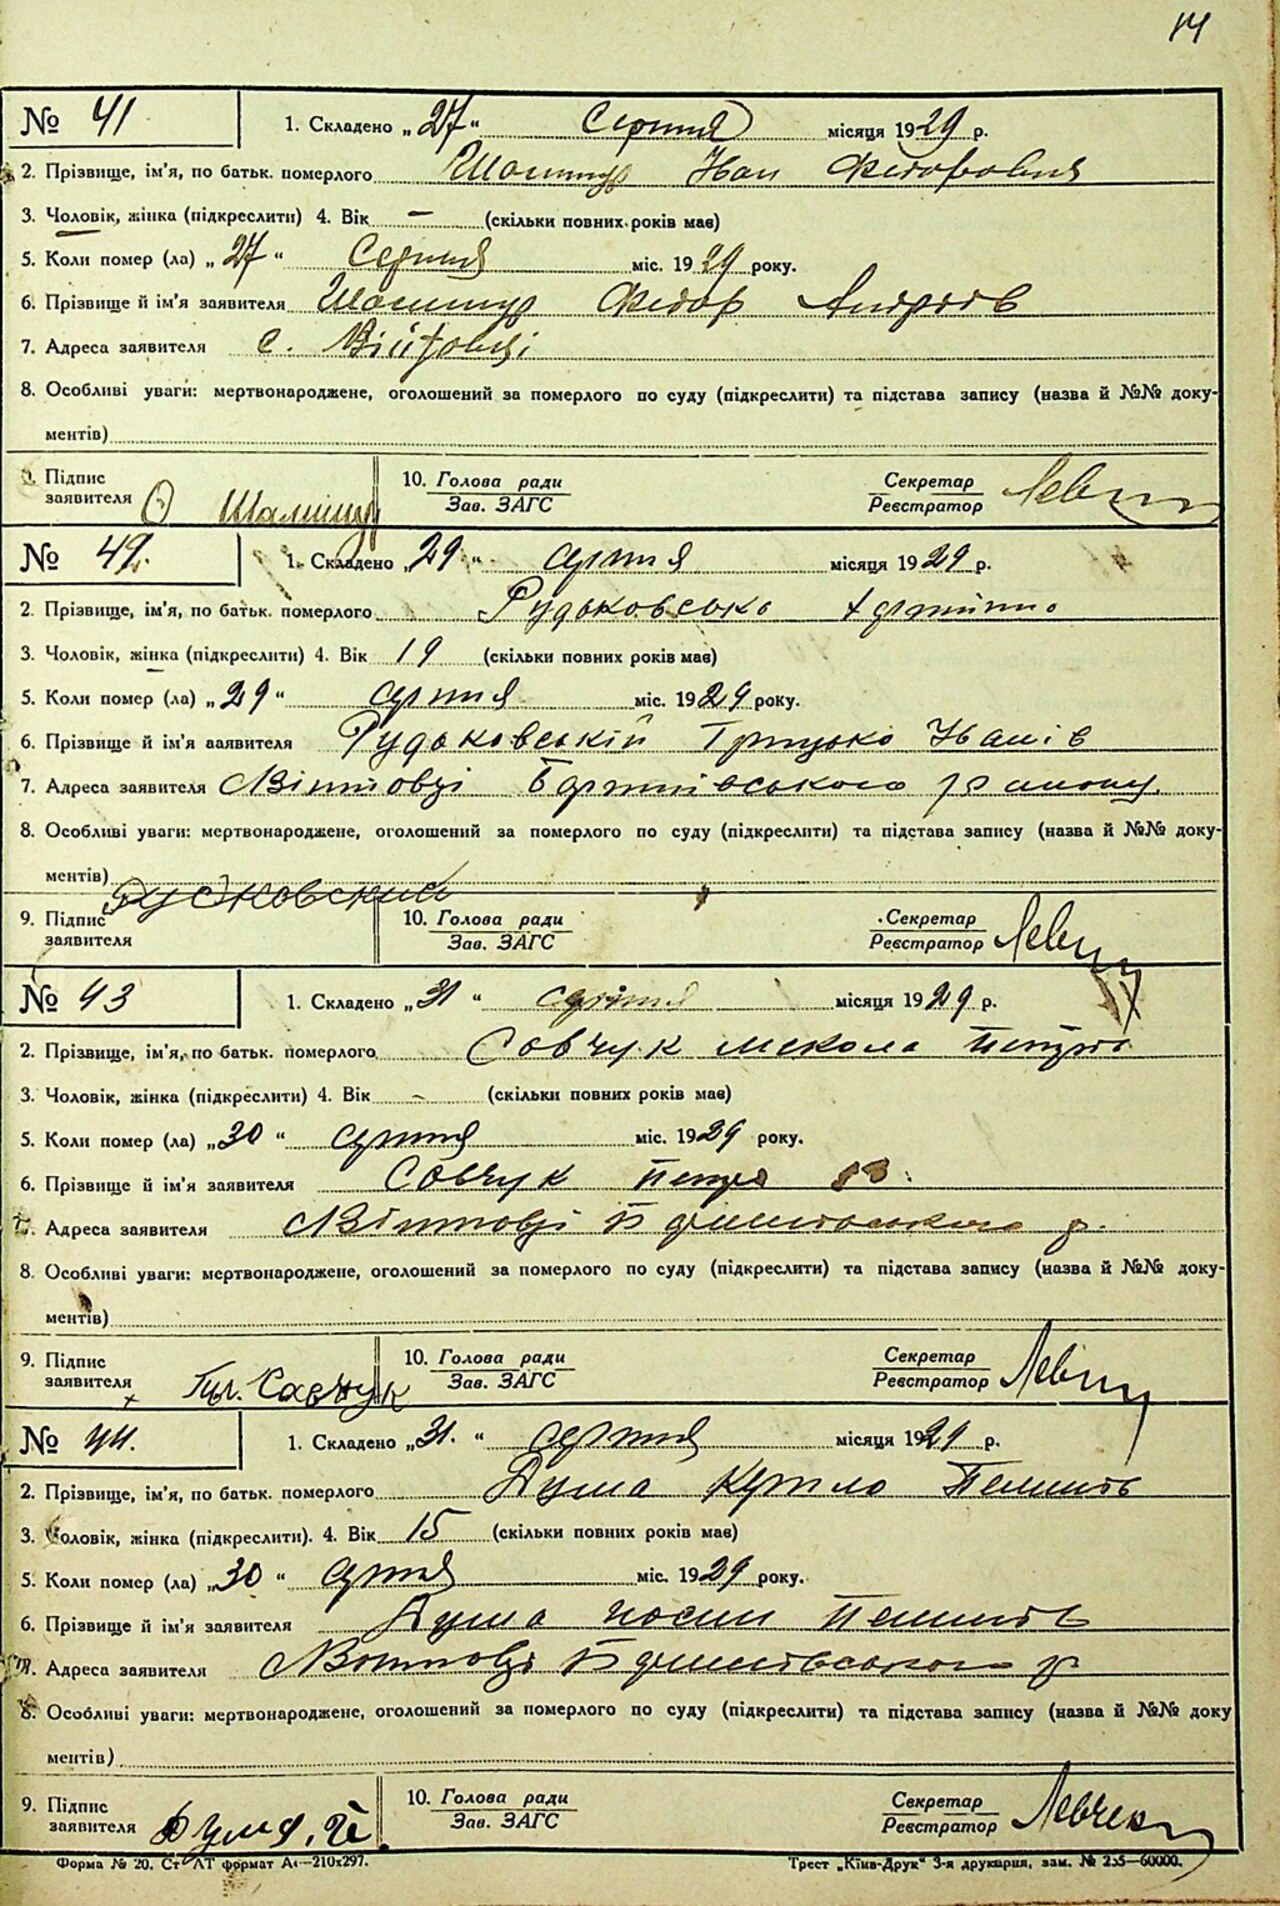 14
№ 41 1. Складено „27“ Серпня місяця 1929 р.
2. Прізвище, ім'я, по батьк. померлого Іван Федорович
3. Чоловік, жінка (підкреслити) 4. Вік — (скільки повних років має)
5. Коли помер (ла) „27“ Серпня міс. 1929 року.
6. Прізвище й ім'я заявителя Федор Андріїв
7. Адреса заявителя с. Війтовці
8. Особливі уваги: мертвонароджене, оголошений за померлого по суду (підкреслити) та підстава запису (назва й №№ доку-
ментів)
9. Підпис 10. Голова ради Секретар
заявителя Зав. ЗАГС Реєстратор
№ 42. 1. Складено „29“ серпня місяця 1929 р.
2. Прізвище, ім'я, по батьк. померлого Рудьковська
3. Чоловік, жінка (підкреслити) 4. Вік 19 (скільки повних років має)
5. Коли помер (ла) „29“ серпня міс. 1929 року.
6. Прізвище й ім'я заявителя Рудьковській Грицько Іванів
7. Адреса заявителя Війтовці
8. Особливі уваги: мертвонароджене, оголошений за померлого по суду (підкреслити) та підстава запису (назва й №№ доку-
ментів)
Рудковский
9. Підпис 10. Голова ради Секретар
заявителя Зав. ЗАГС Реєстратор
№ 43 1. Складено „31“ серпня місяця 1929 р.
2. Прізвище, ім'я, по батьк. померлого Совчук Микола Петрів
3. Чоловік, жінка (підкреслити) 4. Вік - (скільки повних років має)
5. Коли помер (ла) „30“ серпня міс. 1929 року.
6. Прізвище й ім'я заявителя Совчук Петро
7. Адреса заявителя Війтовці р.
8. Особливі уваги: мертвонароджене, оголошений за померлого по суду (підкреслити) та підстава запису (назва й №№ доку-
ментів)
9. Підпис 10. Голова ради Секретар
заявителя Савчук Зав. ЗАГС Реєстратор
№ 44. 1. Складено „31.“ серпня місяця 1929 р.
2. Прізвище, ім'я, по батьк. померлого Дума
3. Чоловік, жінка (підкреслити). 4. Вік 15 (скільки повних років має)
5. Коли помер (ла) „30“ серпня міс. 1929 року.
6. Прізвище й ім'я заявителя Дума
7. Адреса заявителя р.
8. Особливі уваги: мертвонароджене, оголошений за померлого по суду (підкреслити) та підстава запису (назва й №№ доку
ментів)
9. Підпис 10. Голова ради Секретар
заявителя Зав. ЗАГС Реєстратор
Форма № 20. Ст ЛТ формат А4—210х297. Трест „Київ-Друк“ 3-я друкарня, зам. № 255—60000.